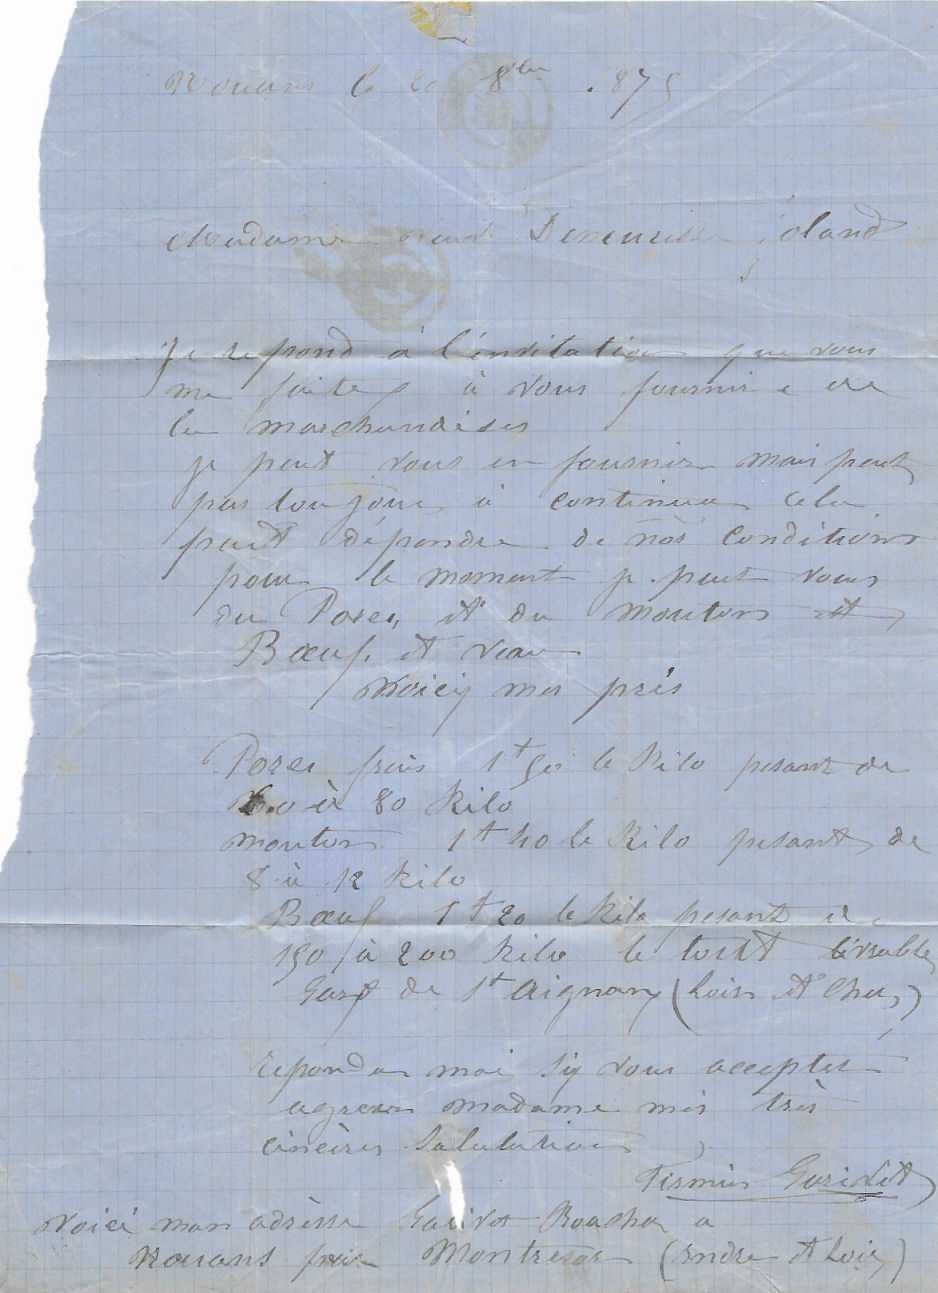 Nouans le 20 8bre 1875
Madame
Je repond à l'invitation que vous
me faites à vous fournire de
la marchandises
je peut vous en fournir mais peut
pas toujour à continuer cela
peut dépondre de nos conditions
pour le moment je peut vous
du Porc et du moutons et
Bœuf et veau
Voicy mes pris
Porc frais 1f 50 le Kilo pesant de
à 80 Kilo
mouton 1f 40 le Kilo pesant de
8 à 12 Kilo
Bœuf 1f 20 le Kilo pesant de
150 à 200 Kilo le tout
Gare de St Aignan (Loir et Cher)
repondez moi sy vous acceptes
agreer madame mes très
cincères Salutations
Firmin Garidet
Voici mon adrèsse Boucher a
Nouans près Montresor (Indre et Loir)